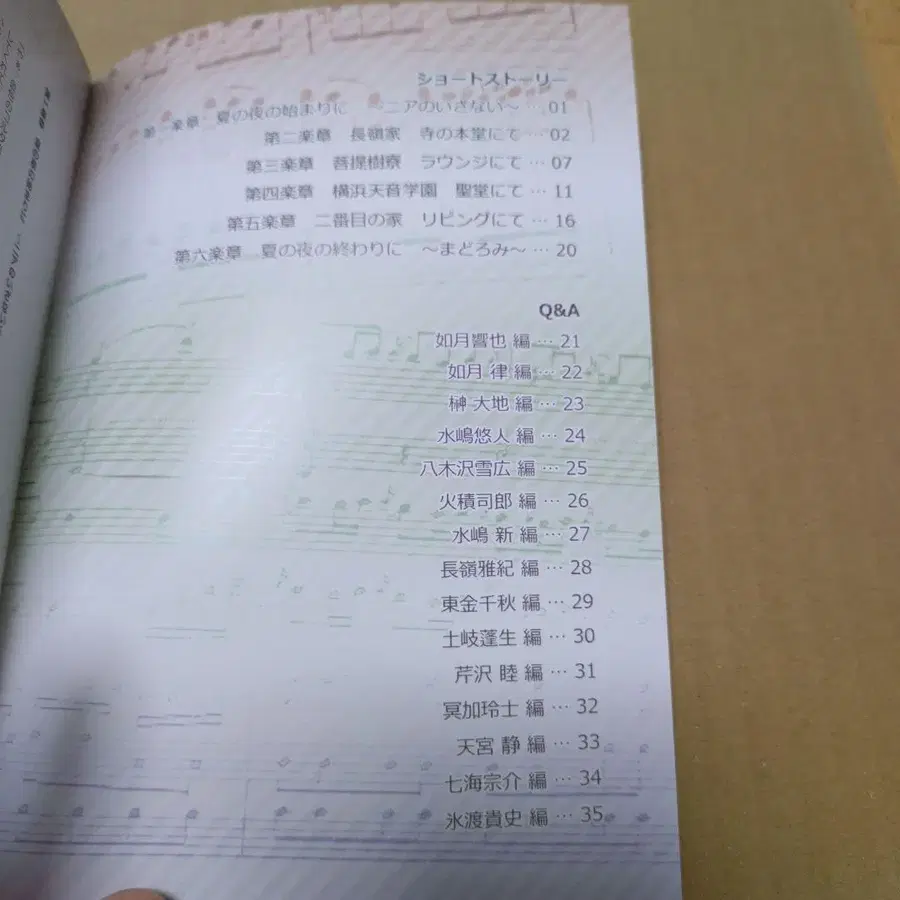 ショートストーリー
第一楽章 夏の夜の始まりに ニアのいざない～ … 01
第二楽章 長嶺家 寺の本堂にて … 02
第三楽章 菩提樹寮 ラウンジにて … 07
第四楽章 横浜天音学園 聖堂にて … 11
第五楽章 二番目の家 リビングにて … 16
第六楽章 夏の夜の終わりに ～まどろみ～ … 20
Q&A
如月響也 編 … 21
如月 律 編 … 22
榊 大地 編 … 23
水嶋悠人 編 … 24
八木沢雪広 編 … 25
火積司郎 編 … 26
水嶋 新 編 … 27
長嶺雅紀 編 … 28
東金千秋 編 … 29
土岐蓬生 編 … 30
芹沢 睦 編 … 31
冥加玲士 編 … 32
天宮 静 編 … 33
七海宗介 編 … 34
氷渡貴史 編 … 35